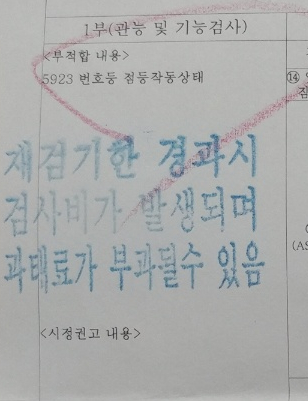 1부(관능 및 기능검사)
<부적합 내용>
5923 번호등 점등작동상태
⑭
재검기한 경과시
검사비가 발생되며
과태료가 부과될수 있음
(AS
<시정권고 내용>